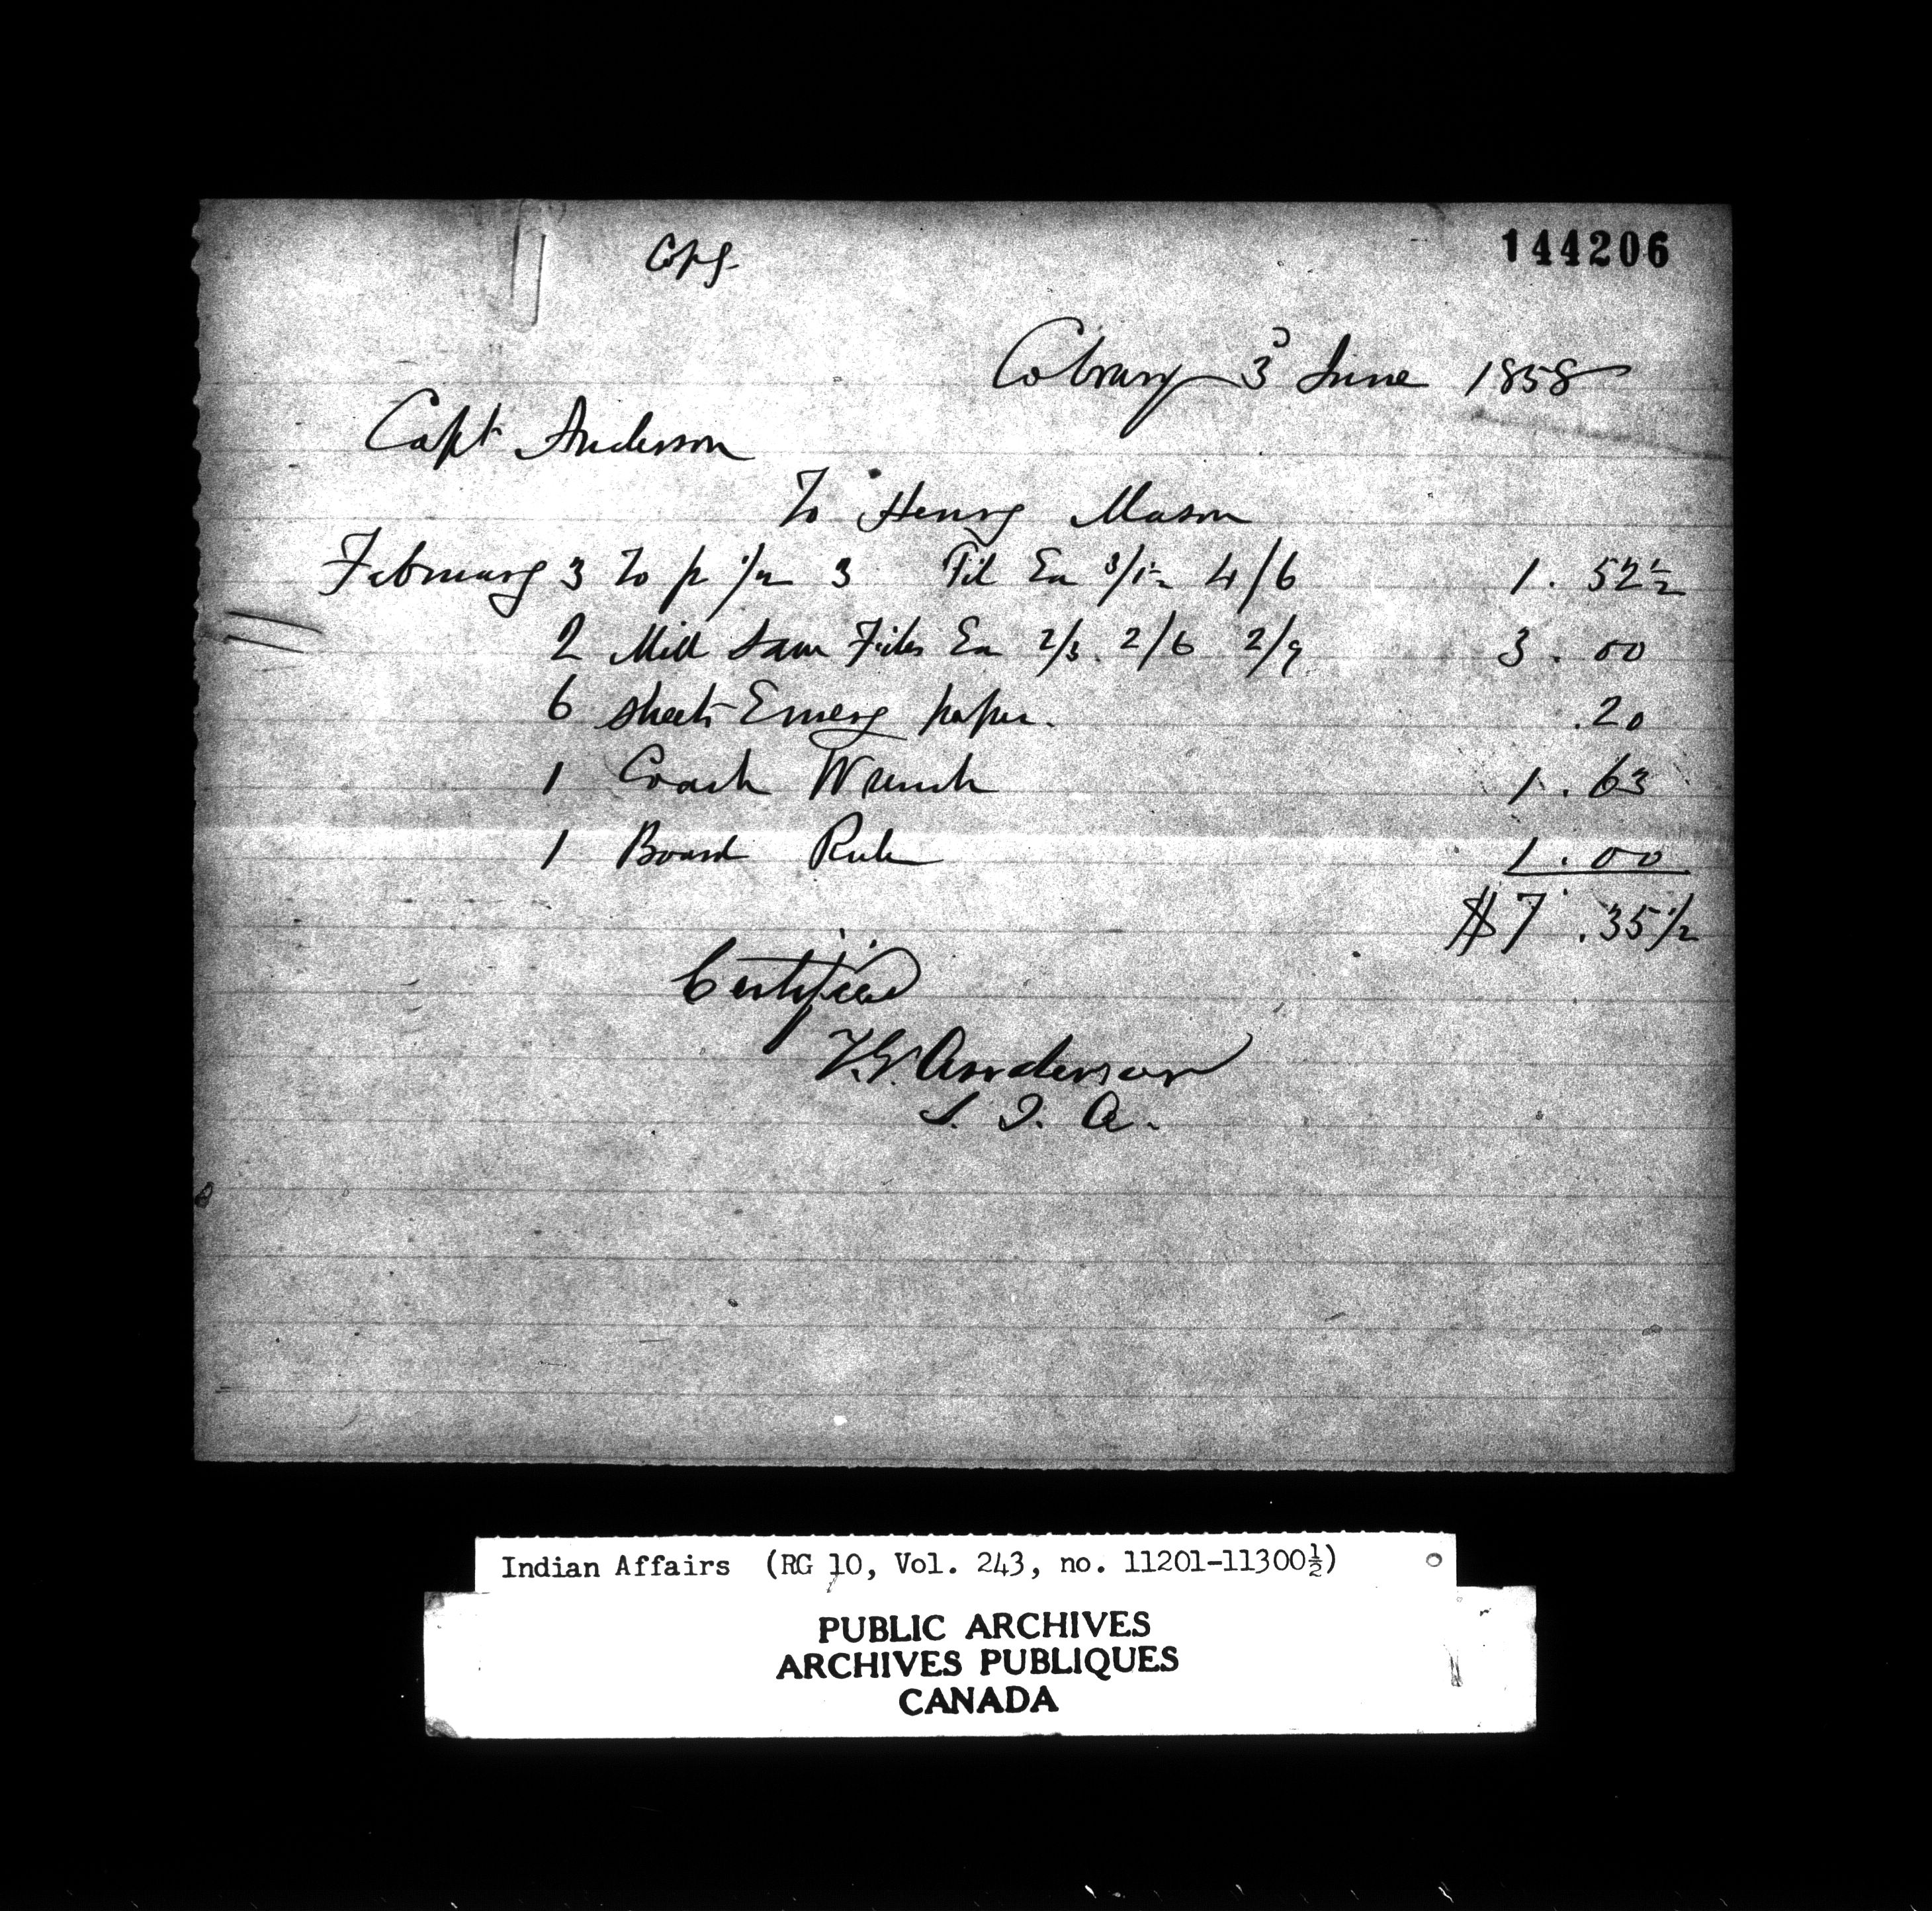 Copy
144206
Cobourg 3d June 1858
Capt Anderson
To Henry Mason
February 3 To p 3 Fil Ea 3/1½ 4/6 1.52½
2 Mill Saw Files Ea 2/3. 2/6 2/9 3.00
6 sheets Emery paper. .20
1 Coach Wrench 1.63
1 Board Rule 1.00
$7.35½
Certified
T.G. Anderson
S. I. A.
Indian Affairs (RG 10, Vol. 243, no. 11201-11300½)
PUBLIC ARCHIVES
ARCHIVES PUBLIQUES
CANADA